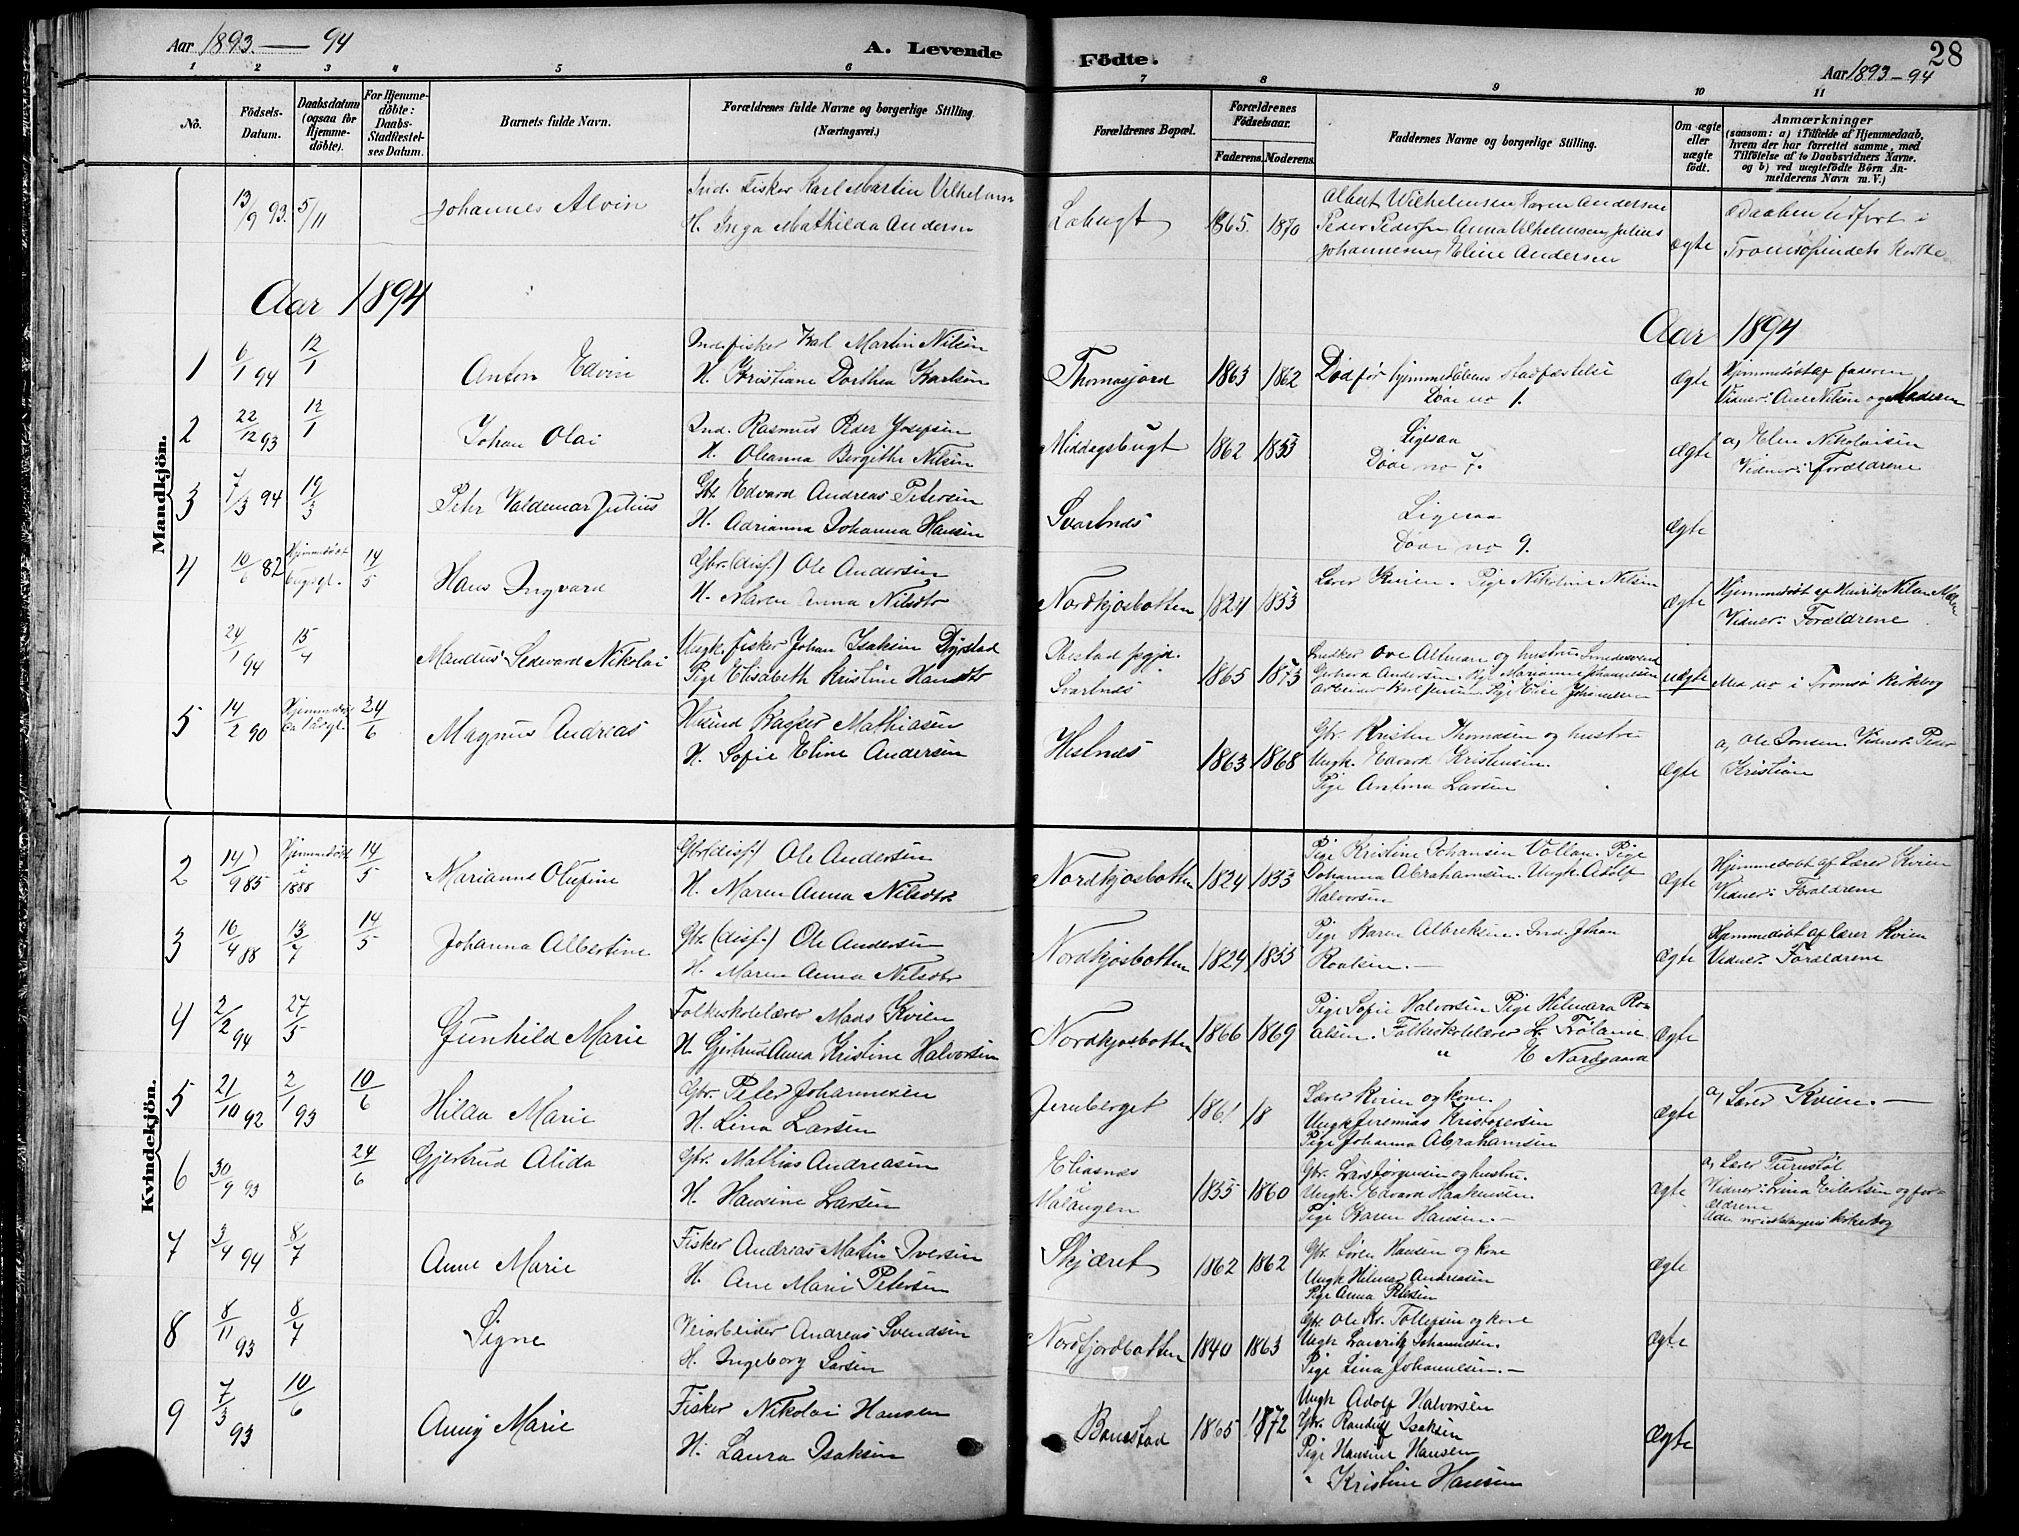 Aar 1893 — 94
A. Levende
Födte.
28
Aar 1893-94
1 2 3 4 5 6 7 8 9 10 11
No.
Födsels-Datum.
Daabsdatum (ogsaa for Hjemme-döbte).
For Hjemme-döbte: Daabs-Stadfæstel-ses Datum.
Barnets fulde Navn.
Forældrenes fulde Navne og borgerlige Stilling. (Næringsvei.)
Forældrenes Bopæl.
Forældrenes Födselsaar.
Faderens. Moderens.
Faddernes Navne og borgerlige Stilling.
Om ægte eller uægte födt.
Anmærkninger
(saasom: a) i Tilfælde af Hjemmedaab, hvem der har forrettet samme, med Tilföielse af to Daabsvidners Navne. og b) ved uægtefödte Börn An-melderens Navn m. V.)
13/9 93. 5/11 Johannes Alvin
Ind. Fisker Karl Martin Vilhelmsen
H. Inga Mathilda Andersen
1865. 1870
Albert Wilhelmsen Karen Andersen
Peder Pedersen Anna Vilhelmsen Julius
Johannesen, Eline Andersen
ægte
Daaben udført i
Aar 1894
Aar 1894
Mandkjön.
1 6/1 94 12/1 Anton Edvin
Inds fisker Karl Martin Nilsen
H. Kristiane Dorthea Karlsen
Thomasjord 1863 1862
Død før hjemmedåbens stadfæstelse
Døde no 1.
Ægte
Hjemmedøbt af faderen
Vidner: Ane Nilsen og Moderen
2 22/12 93 12/1 Johan Olai
Ind. Rasmus Peder Josefsen
H. Oleanna Bergitte Nilsen
Middagsbugt 1862 1853
Ligesaa
Døde no 7.
Ægte
a, Elen Nikolaisen
Vidner: Forældrene
3 7/3 94 19/3 Peter Valdemar Julius
Gbr. Edvard Andreas Petersen
H. Adrianna Johanna Hansen
Svartnæs
Ligesaa
Døde no 9.
Ægte
4 10/6 82 Hjemmedøbt 14/5 Hans Ingvard
Gbr. (disf.) Ole Andersen
H. Maren Anna Nilsdtr
Nordkjosbotten 1824 1853
Lærer Kvien. Pige Nikoline Nilsen
Ægte
Vidner: Forældrene
24/1 94 15/4 Mandus Sedvard Nikolai
Ungk. fisker Johan Isaksen Dyrstad
Pige Elisabeth Kristine Hansdtr
Svartnæs
1865 1873
uægte
5 14/2 90 24/6 Magnus Andreas
Kasper Mathiasen
H. Sofie Eline Andersen
1863 1868
Gbr. Kristen Thomasen og hustru
Ungk. Edvard Kristensen.
Pige Antina Larsen
Ægte
a, Ole Jonsen. Vidner: Peder
Kristian
Kvindekjön.
2 14/9 85 Hjemmedøbt i 1888 14/5 Marianne Olufine
Gbr (disf.) Ole Andersen
H. Maren Anna Nilsdtr
Nordkjosbotten 1824 1853
Pige Kristine Johansen Vollan. Pige
Johanna Abrahamsen. Ungk. Adolf
Halvorsen
Ægte
Hjemmedøbt af Lærer Kvien
Vidner: Forældrene
3 16/4 88 13/7 14/5 Johanna Albertine
Gbr. (disf.) Ole Andersen
H. Maren Anna Nilsdtr
Nordkjosbotten 1824 1853
Pige Karen Albriktsen. Ind. Johan
Roalsen. —
Ægte
Hjemmedøbt af Lærer Kvien
Vidner: Forældrene
4 2/2 94 27/5 Gunhild Marie
Folkeskolelærer Mads Kvien
H. Gjertrud Anna Kristine Halvorsen
Nordkjosbotten 1866 1869
Pige Sofie Halvorsen Pige Hilmara Ro-
alsen. Folkeskolelærer
" E Nordgaard
Ægte
5 21/10 92 2/1 93 10/6 Hilda Marie
Gbr. Peter Johannesen
H. Lina Larsen
Jernberget 1861 18
Lærer Kvien og kone.
Ungk Jeremias Kristofersen
Pige Johanna Abrahamsen
Ægte
a, Lærer Kvien. —
6 30/9 93 24/6 Gjertrud Alida
Gbr. Mathias Andreasen
H. Hansine Larsen
Eliasnæs
i
Malangen
1855 1860
Gbr. Lars Jørgensen og hustru.
Ungk. Edvard Haakensen.
Pige Karen Hansen. —
ægte
Vidner: Lina Eilertsen og for-
ældrene
7 3/4 94 8/7 Anne Marie
Fisker Andreas Martin Iversen
H. Ane Marie Petersen
Skjæret 1862 1862
Gbr. Søren Hansen og kone
Ungk Hilmar Andreasen
Pige Anna Petersen
Ægte
8 8/11 93 8/7 Signe
Veiarbeider Andreas Svendsen
H. Ingeborg Larsen
Nordfjordbotten 1840 1863
Gbr. Ole Kr. Tollefsen og kone
Ungk Lauritz Johannesen.
Pige Lina Johannesen. —
Ægte
9 7/3 93 10/6 Anny Marie
Fisker Nikolai Hansen
H. Laura Isaksen
1865 1872
Ungk Adolf Halvorsen
Gbr. Randulf Isaksen
Pige Hansine Hansen
" Kristine Hansen
Ægte